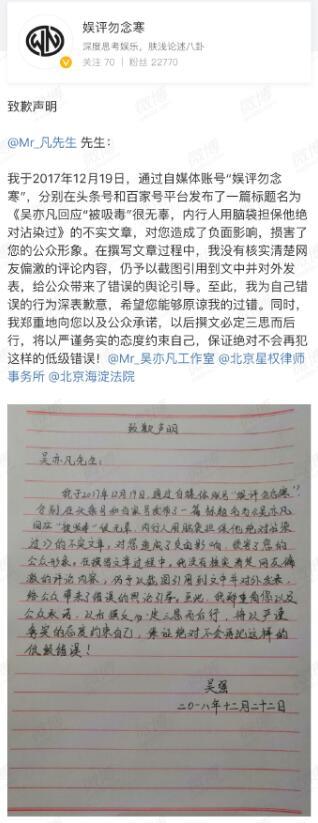 娱评勿念寒
深度思考娱乐，肤浅论述八卦
关注 70 | 粉丝 22770
致歉声明
@Mr_凡先生 先生：
我于2017年12月19日，通过自媒体账号“娱评勿念
寒”，分别在头条号和百家号平台发布了一篇标题名为
《吴亦凡回应“被吸毒”很无辜，内行人用脑袋担保他绝
对沾染过》的不实文章，对您造成了负面影响，损害了
您的公众形象。在撰写文章过程中，我没有核实清楚网
友偏激的评论内容，仍予以截图引用到文中并对外发
表，给公众带来了错误的舆论引导。至此，我为自己错
误的行为深表歉意，希望您能够原谅我的过错。同时，
我郑重地向您以及公众承诺，以后撰文必定三思而后
行，将以严谨务实的态度约束自己，保证绝对不会再犯
这样的低级错误！@Mr_吴亦凡工作室 @北京星权律师
事务所 @北京海淀法院
致歉声明
吴亦凡先生：
我于2017年12月19日，通过自媒体账号“娱评勿念寒”
分别在头条号和百家号发布了一篇标题名为《吴亦凡
回应“被吸毒”很无辜，内行人用脑袋担保他绝对沾染
过》的不实文章，对您造成了负面影响，损害了您的
公众形象。在撰写文章过程中，我没有核实清楚网友偏
激的评论内容，仍予以截图引用到文中并对外发表，
给公众带来了错误的舆论引导。至此，我郑重向您以及
公众承诺，以后撰文必定三思而后行，将以严谨
务实的态度约束自己，保证绝对不会再犯这样的
低级错误！
吴强
二〇一八年十二月二十二日